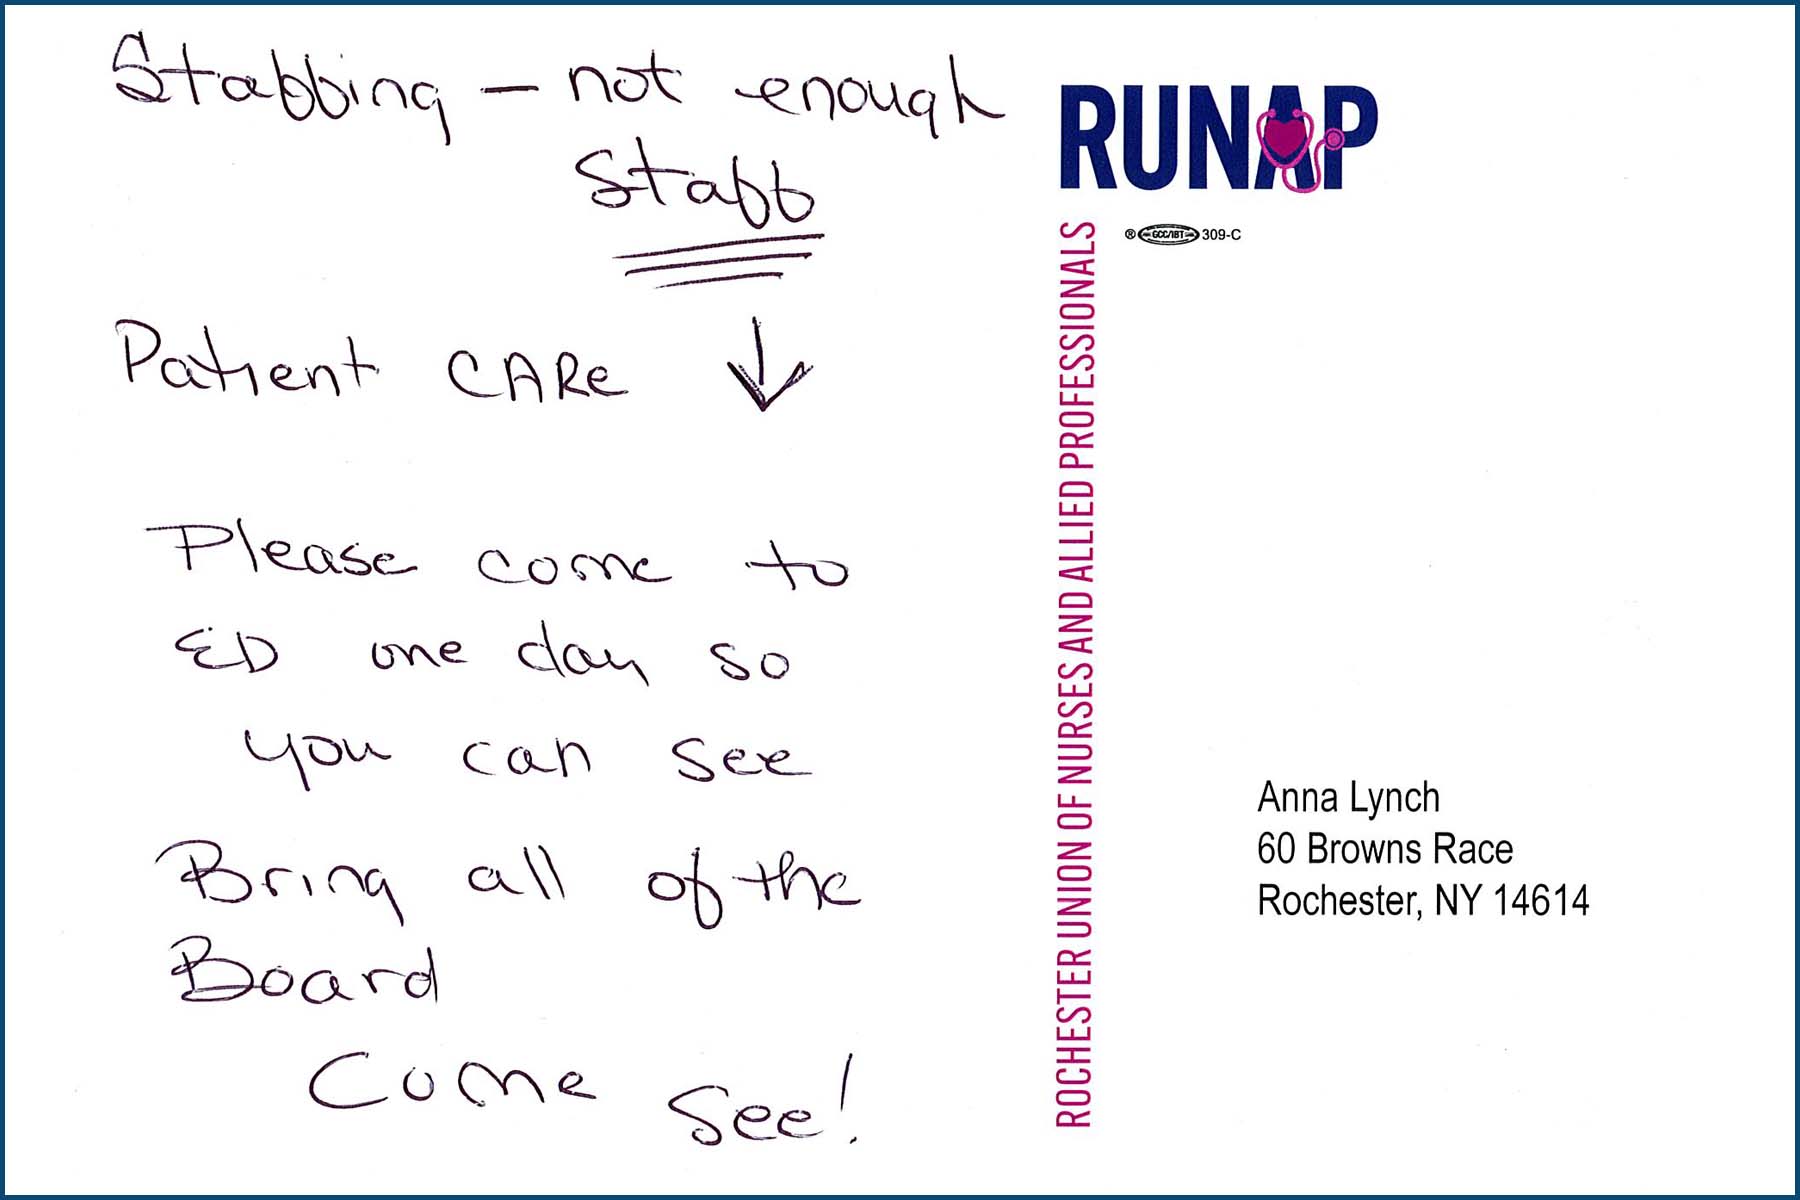 Staffing – not enough
Staff
Patient CARe ↓
Please come to
ED one day so
you can see
Bring all of the
Board
Come See!
RUNAP
® GCC/IBT 309-C
ROCHESTER UNION OF NURSES AND ALLIED PROFESSIONALS
Anna Lynch
60 Browns Race
Rochester, NY 14614